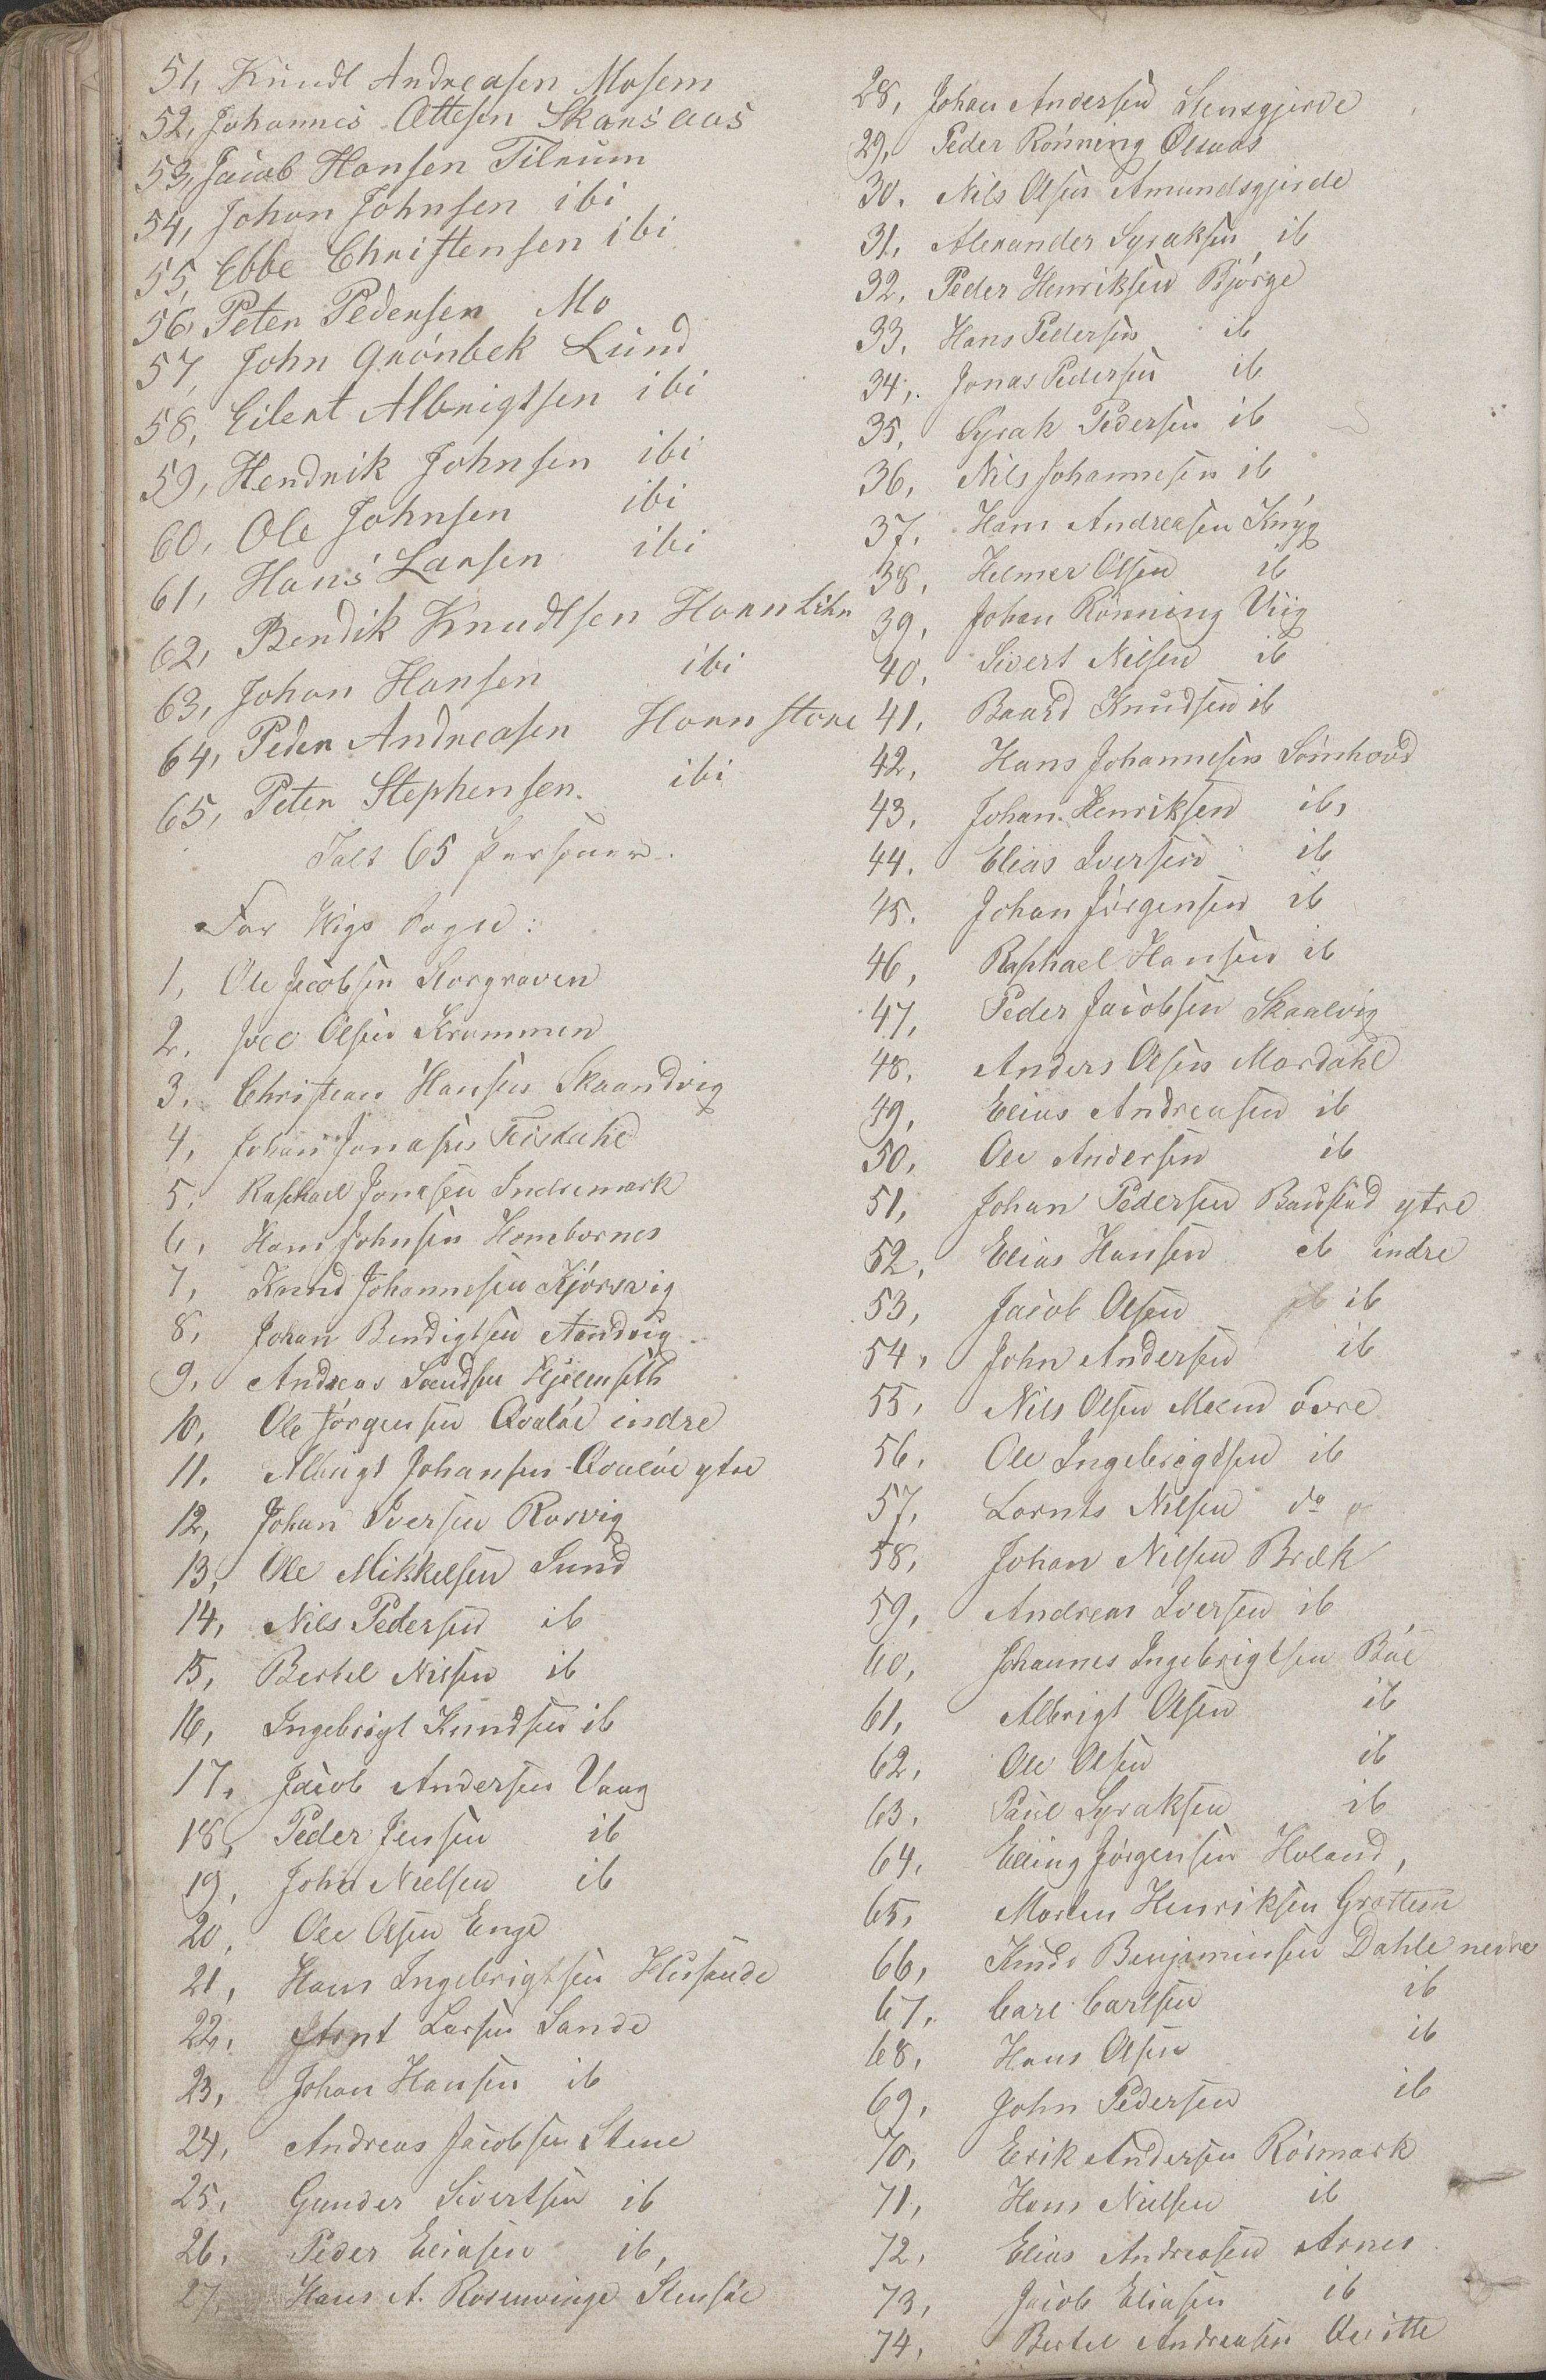 51, Knudt Andreasen Mosem
52, Johannes Ottesen Skarsaas
53, Jacob Hansen Tilrum
54, Johan Johnsen ibi
55, Ebbe Christensen ibi
56, Peter Pedersen Mo
57, John Grönbek Lund
58, Eilert Albrigtsen ibi
59, Hendrik Johnsen ibi
60, Ole Johnsen ibi
61, Hans Larsen ibi
62, Bendik Knudtsen Horn
63, Johan Hansen ibi
64, Peder Andreasen Horn store
65, Peter Stephensen. ibi
Ialt 65 Personer.
For Wigs Sogn:
1, Ole Jacobsen Storgraven
2. Olsen Krommen
3. Christian Hansen Skaandvig
4, Johan Jonasen
5. Raphael Jonasen Indremark
6, Hans Johnsen Hombornes
7, Knud Johannesen Kjørsvig
8, Johan Bendigtsen Aandvig
9, Andreas Hjelmseth
10, Ole Jørgensen Qvaløe indre
11. Albrigt Johansen Qvaløe ytre
12, Johan Iversen Rorvig
13, Ole Mikkelsen Sund
14, Nils Pedersen ib
15, Bertel Nilsen ib
16, Ingebrigt Knudsen ib
17. Jacob Andersen Vaag
18, Peder Jensen ib
19, John Nielsen ib
20, Ole Olsen Enge
21, Hans Ingebrigtsen
22. Arnt Larsen Sande
23, Johan Hansen ib
24, Andreas Jacobsen Stene
25, Gunder Sivertsen ib
26, Peder Eliasen ib,
27, Hans A. Rosenvinge Stensøe
28, Johan Andersen Stensgjerde
29, Peder Rönning Olsaas
30. Nils Olsen Amundsgjerde
31, Alexander Syraksen ib
32, Peder Henriksen Bjørge
33, Hans Pedersen ib
34, Jonas Pedersen ib
35, Syrak Pedersen ib
36, Nils Johannesen ib
37. Hans Andreasen Knyg
38, Helmer Olsen ib
39, Johan Rönning Viig
40, Sivert Nilsen ib
41, Baard Knudsen ib
42, Hans Johannesen Sömhovd
43, Johan Henriksen ib,
44. Elias Iversen ib
45. Johan Jörgensen ib
46, Raphael Hansen ib
47, Peder Jacobsen Skaalvig
48. Anders Olsen Mardahl
49, Elias Andreasen ib
50, Ole Andersen ib
51, Johan Pedersen ytre
52, Elias Hansen ib indre
53, Jacob Olsen ib ib
54, John Andersen ib
55, Nils Olsen övre
56. Ole Ingebrigtsen ib
57, Lornts Nilsen do o
58, Johan Nilsen Bræk
59, Andreas Iversen ib
60, Johannes Ingebrigtsen Böe
61, Albrigt Olsen ib
62, Ole Olsen ib
63, Paul Syraksen ib
64, Elling Jørgensen Holand,
65, Morten Henriksen Grøttem
66, Knud Benjaminsen Dahle nedre
67, Carl Carlsen ib
68, Hans Olsen ib
69, John Pedersen ib
70, Erik Andersen Rörmark
71, Hans Nielsen ib
72, Elias Andreasen Arnes
73, Jacob Eliasen ib
74, Bertel Andreasen